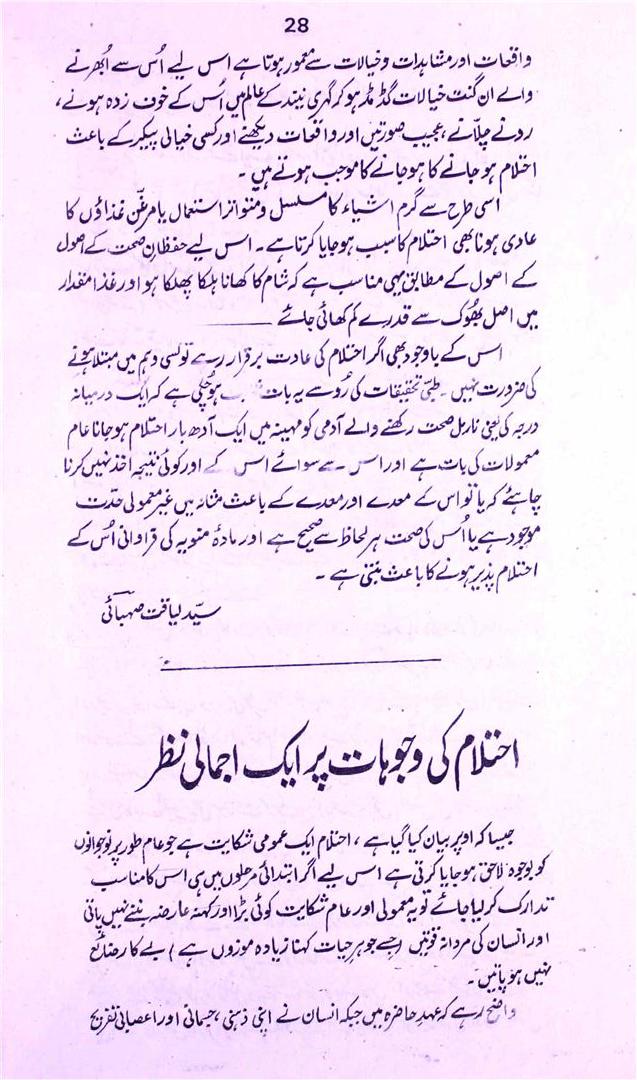 28
واقعات اور مشاہدات و خیالات سے معمور ہوتا ہے اس لیے اُس سے اُبھرنے
والے ان گنت خیالات گڈ مڈ ہو کر گہری نیند کے عالم میں اُس کے خوف زدہ ہونے،
رونے چلّانے، عجیب صورتیں اور واقعات دیکھنے اور کسی خیالی پیکر کے باعث
احتلام ہو جانے کا ہو جانے کا موجب ہوتے ہیں ۔
اسی طرح سے گرم اشیاء کا مسلسل و متواتر استعمال یا مرغّن غذاؤں کا
عادی ہونا بھی احتلام کا سبب ہو جایا کرتا ہے۔ اس لیے حفظانِ صحت کے اصول
کے اصول کے مطابق یہی مناسب ہے کہ شام کا کھانا ہلکا پھلکا ہو اور غذا مقدار
میں اصل بھُوک سے قدرے کم کھائی جائے
اس کے باوجود بھی اگر احتلام کی عادت برقرار رہے تو کسی وہم میں مبتلا ہونے
کی ضرورت نہیں ۔ طبّی تحقیقات کی رُو سے یہ بات ہو چکی ہے کہ ایک درمیانہ
درجہ کی یعنی نارمل صحت رکھنے والے آدمی کو مہینہ میں ایک آدھ بار احتلام ہو جانا عام
معمولات کی بات ہے اور اس سے سوائے اس کے اور کوئی نتیجہ اخذ نہیں کرنا
چاہئے کہ یا تو اس کے معدے اور معدے کے باعث مثانہ میں غیر معمولی حدّت
موجود ہے یا اُس کی صحت ہر لحاظ سے صحیح ہے اور مادۂ منویہ کی فراوانی اُس کے
احتلام پذیر ہونے کا باعث بنتی ہے ۔
سیّد لیاقت صہبائی
احتلام کی وجوہات پر ایک اجمالی نظر
جیسا کہ اوپر بیان کیا گیا ہے، احتلام ایک عمومی شکایت ہے جو عام طور پر نوجوانوں
کو بوجوہ لاحق ہو جایا کرتی ہے اس لیے اگر ابتدائی مرحلوں میں ہی اس کا مناسب
تدارک کر لیا جائے تو یہ معمولی اور عام شکایت کوئی بڑا اور کہنہ عارضہ بننے نہیں پاتی
اور انسان کی مردانہ قوتیں (جسے جوہرِ حیات کہنا زیادہ موزوں ہے) بے کار ضائع
نہیں ہو پاتیں ۔
واضح رہے کہ عہدِ حاضرہ میں جبکہ انسان نے اپنی ذہنی، جسمانی اور اعصابی تفریح